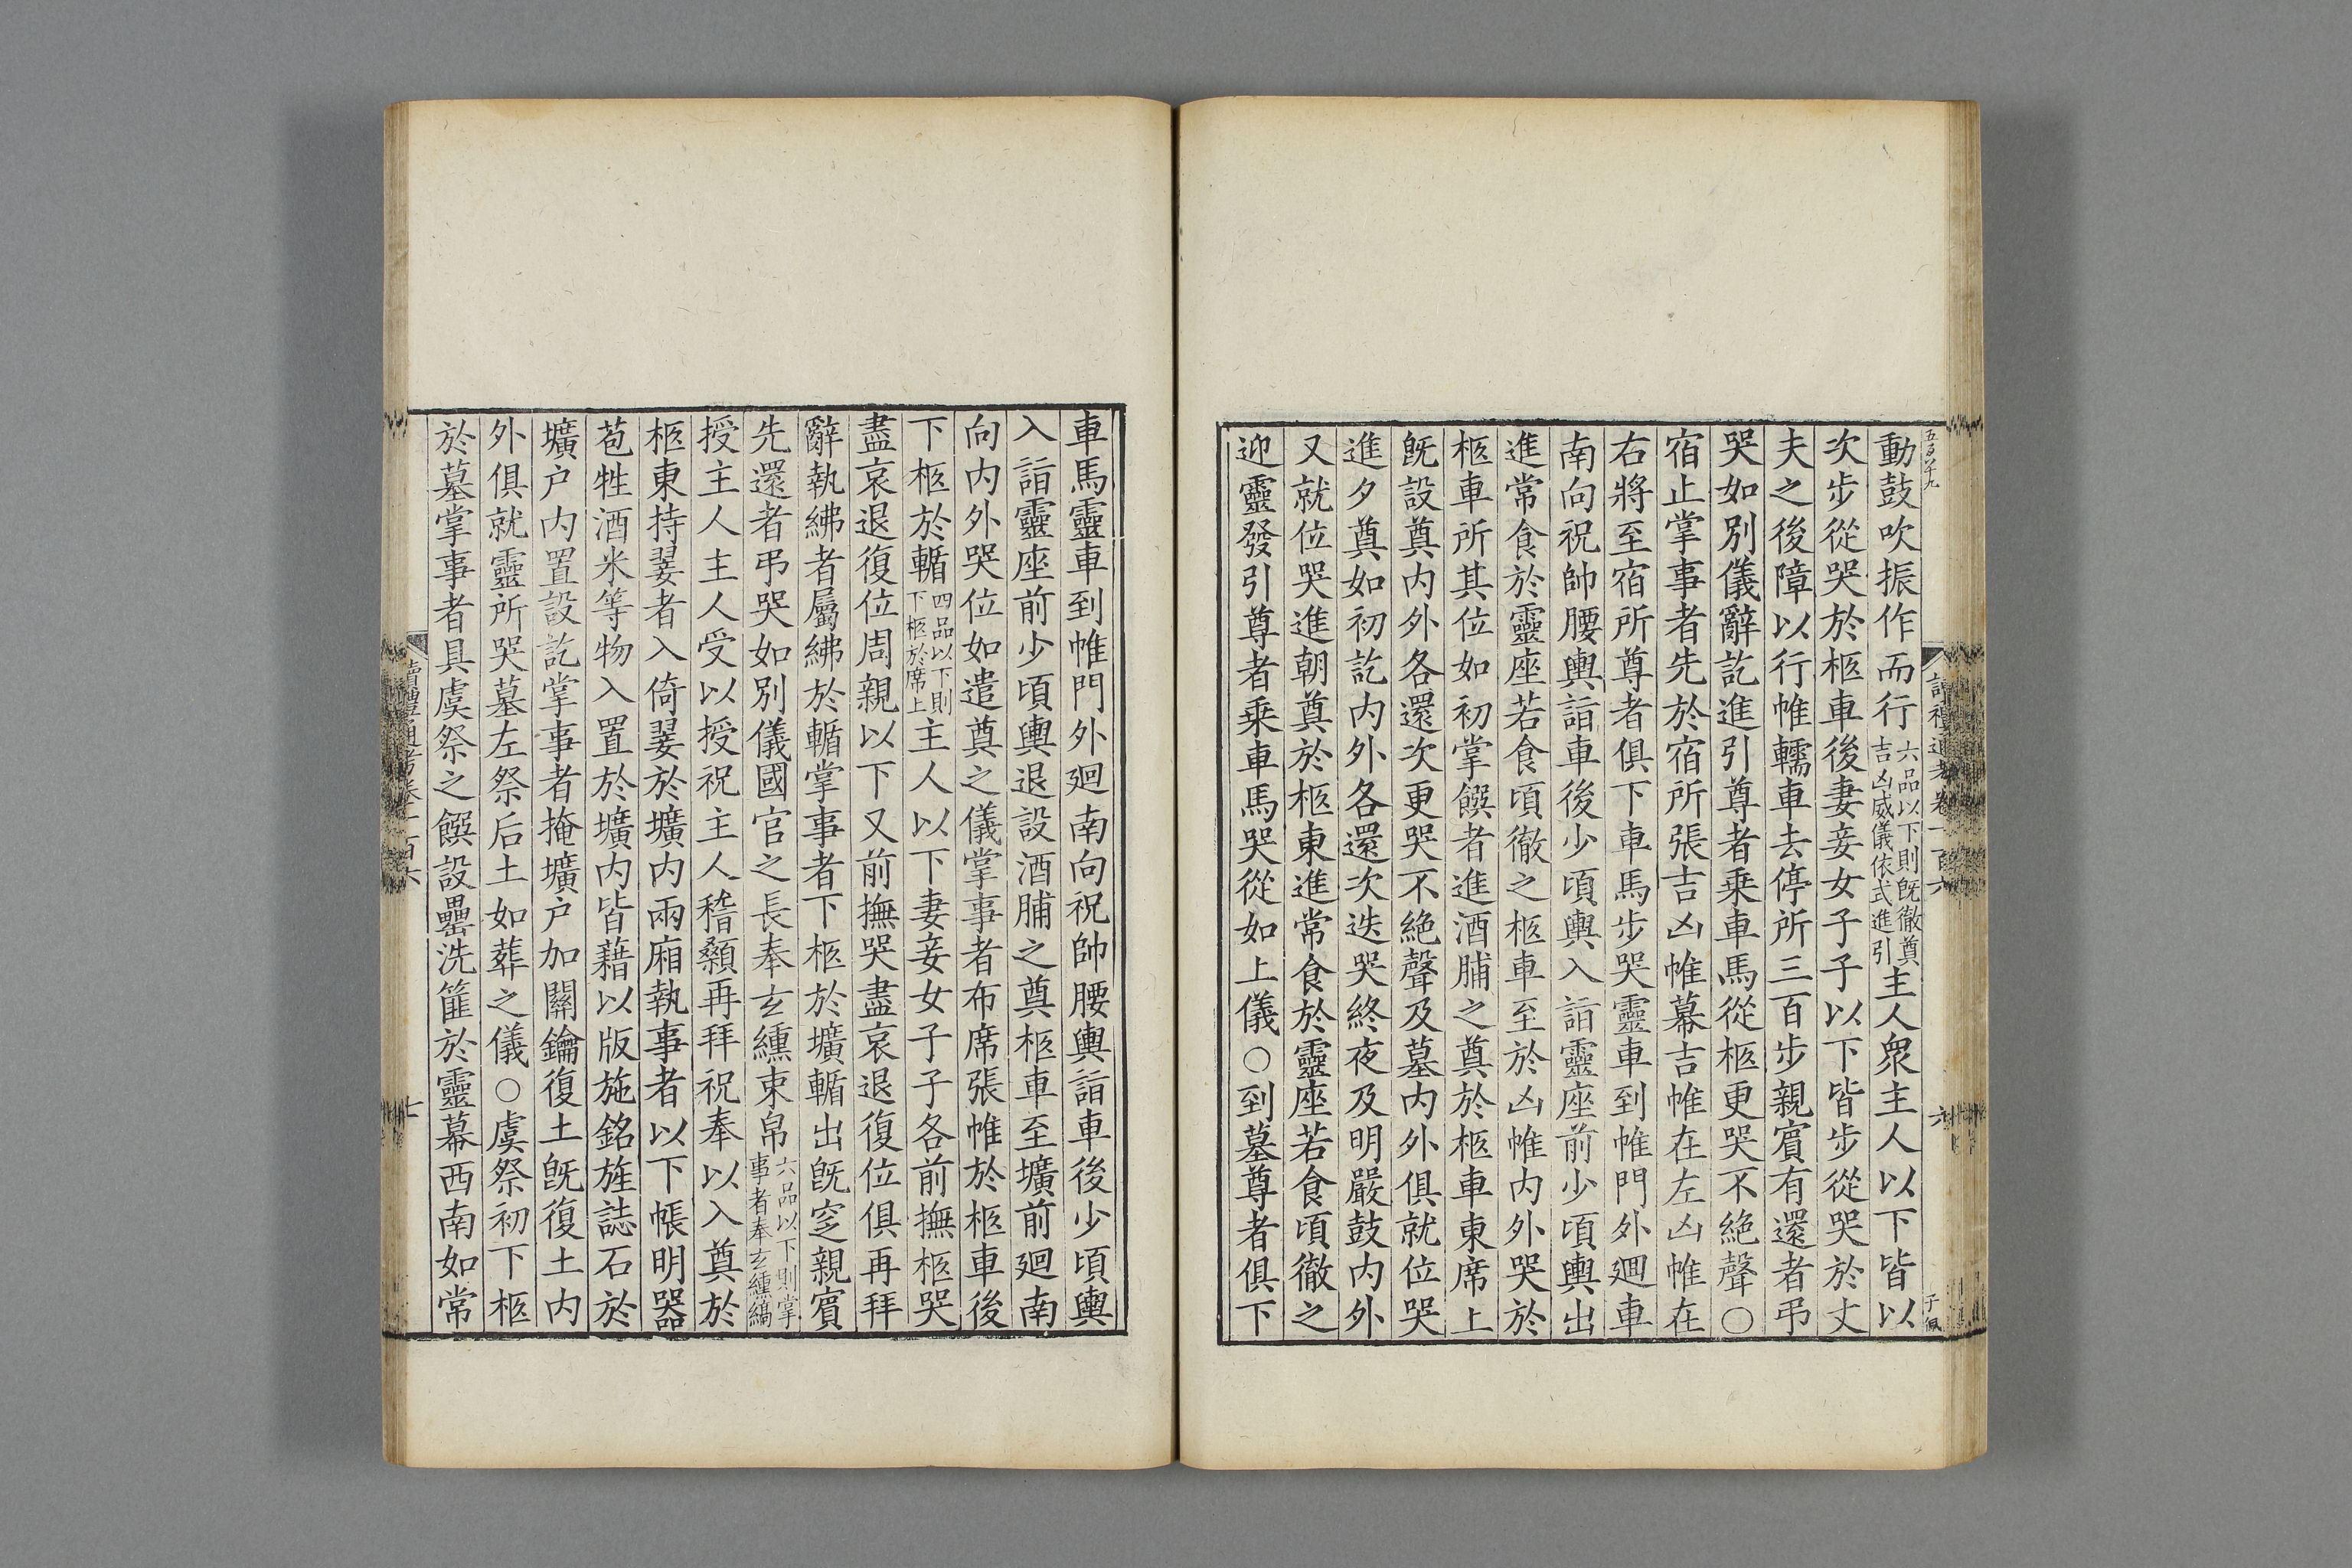 動鼓吹振作而行六品以下則既徹奠吉凶威儀依式進引主人衆主人以下皆以
次步從哭於柩車後妻妾女子子以下皆步從哭於丈
夫之後障以行帷轜車去停所三百步親賓有還者弔
哭如別儀辭訖進引尊者乘車馬從柩更哭不絶聲○
宿止掌事者先於宿所張吉凶帷幕吉帷在左凶帷在
右將至宿所尊者俱下車馬步哭靈車到帷門外迴車
南向祝帥腰輿詣車後少頃輿入詣靈座前少頃輿出
進常食於靈座若食頃徹之柩車至於凶帷内外哭於
柩車所其位如初掌饌者進酒脯之奠於柩車東席上
既設奠内外各還次更哭不絶聲及墓内外俱就位哭
進夕奠如初訖内外各還次迭哭終夜及明嚴鼓内外
又就位哭進朝奠於柩東進常食於靈座若食頃徹之
迎靈發引尊者乘車馬哭從如上儀○到墓尊者俱下
車馬靈車到帷門外迴南向祝帥腰輿詣車後少頃輿
入詣靈座前少頃輿退設酒脯之奠柩車至壙前迴南
向内外哭位如遣奠之儀掌事者布席張帷於柩車後
下柩於輴四品以下則下柩於席上主人以下妻妾女子子各前撫柩哭
盡哀退復位周親以下又前撫哭盡哀退復位俱再拜
辭執紼者屬紼於輴掌事者下柩於壙輴出既窆親賓
先還者弔哭如別儀國官之長奉玄纁束帛六品以下則掌事者奉玄纁縞
授主人主人受以授祝主人稽顙再拜祝奉以入奠於
柩東持翣者入倚翣於壙内兩廂執事者以下帳明器
苞牲酒米等物入置於壙内皆藉以版施銘旌誌石於
壙户内置設訖掌事者掩壙户加關鑰復土既復土内
外俱就靈所哭墓左祭后土如葬之儀○虞祭初下柩
於墓掌事者具虞祭之饌設罍洗篚於靈幕西南如常
讀禮通考卷一百六
六
七